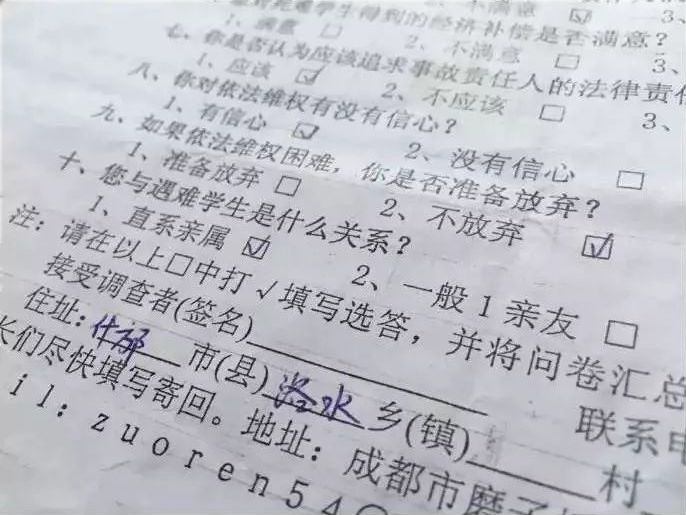 学生得到的经济补偿是否满意?
1、满意 □ 2、不满意 ☑ 3、
七、你是否认为应该追求事故责任人的法律责任
1、应该 ☑ 2、不应该 □ 3、
八、你对依法维权有没有信心?
1、有信心 ☑ 2、没有信心 □
九、如果依法维权困难,你是否准备放弃?
1、准备放弃 □ 2、不放弃 ☑
十、您与遇难学生是什么关系?
1、直系亲属 ☑ 2、一般1亲友 □
注:请在以上□中打√填写选答,并将问卷汇总
接受调查者(签名)________ 联系电
住址:什邡 市(县) 洛水 乡(镇)______村
长们尽快填写寄回。地址:成都市磨子
il:zuoren54@